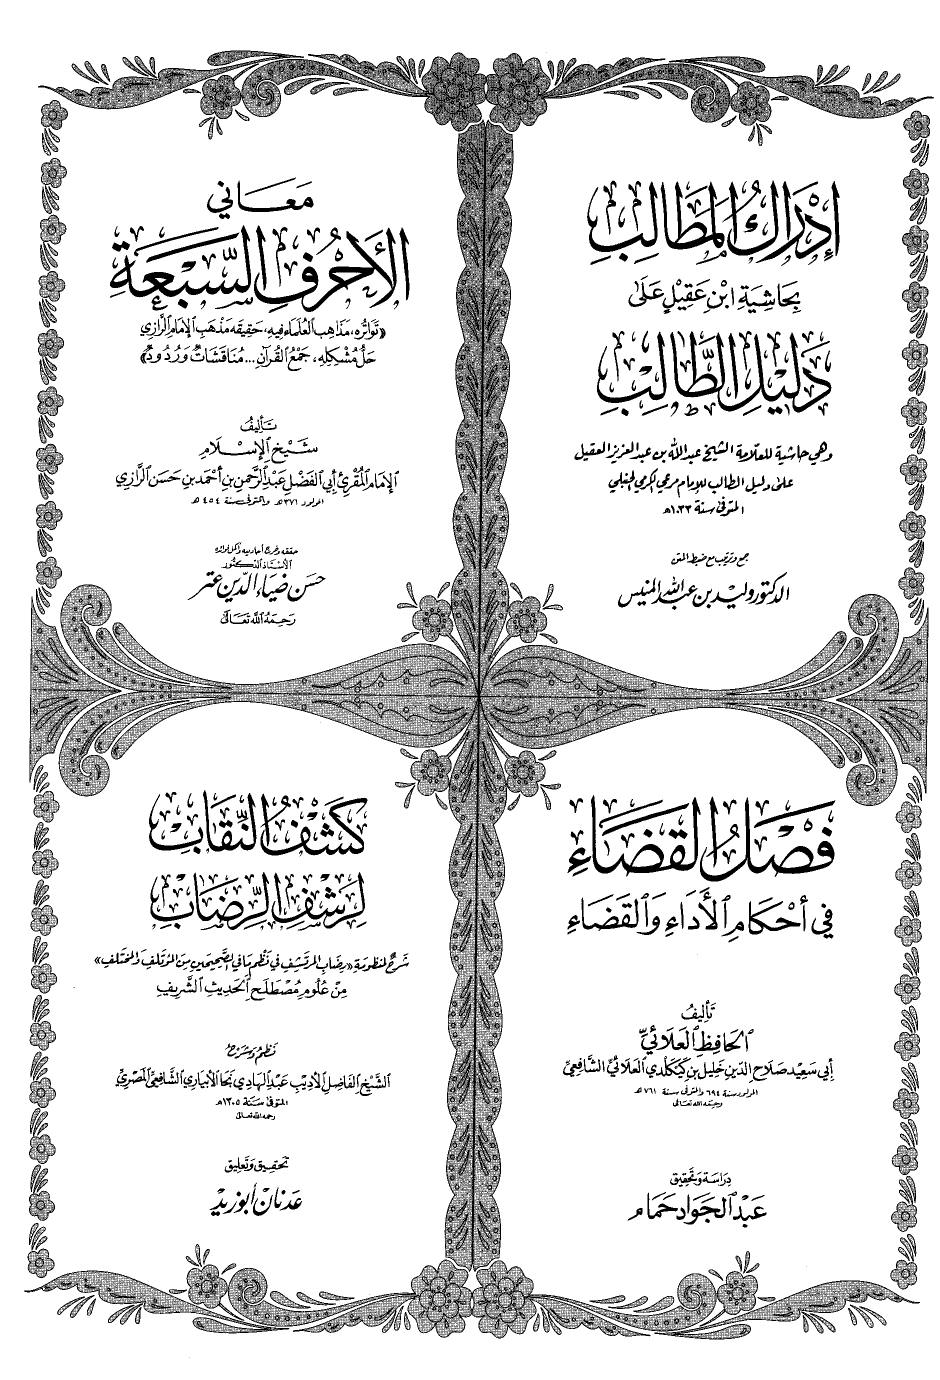 إِدْرَاكُ المَطَالِبِ
بِحَاشِيَةِ ابْنِ عَقِيلٍ عَلَىٰ
دَلِيلِ الطَّالِبِ
وهي حاشية للعلّامة الشيخ عبد الله بن عبد العزيز العقيل
على دليل الطالب للإمام مرعي الكرمي الحنبلي
المتوفى سنة ١٠٣٣هـ
جمع وترتيب مع ضبط المتن
الدكتور وليد بن عبد الله المنيس
مَعَاني
الأَحْرُفِ السَّبْعَةِ
«تَوَاتُرُه، مَذَاهِبُ العُلَمَاءِ فِيهِ، حَقِيقَةُ مَذْهَبِ الإِمَامِ الرَّازِي
حَلُّ مُشْكِلِهِ، جَمْعُ القُرْآنِ... مُنَاقَشَاتٌ وَرُدُودٌ»
تَأليفُ
شَيْخِ الإِسْلَامِ
الإِمَامِ المُقْرِئِ أَبِي الفَضْلِ عَبْدِ الرَّحْمنِ بنِ أَحْمَدَ بنِ حَسَن الرَّازِي
المولود ٣٧١هـ والمتوفى سنة ٤٥٤هـ
حققه وخرج أحاديثه وأكمل فوائده
الأُسْتَاذُ الدُّكتُور
حَسَن ضِيَاء الدِّين عتر
رَحِمَهُ اللَّه تَعَالَىٰ
فَصْلُ القَضَاءِ
في أَحْكَامِ الأَدَاءِ وَالقَضَاءِ
تَأليفُ
الحَافِظِ العَلَائِيِّ
أَبِي سَعِيد صَلَاحِ الدِّينِ خَلِيل بنِ كَيْكَلْدي العَلَائِيِّ الشَّافِعِيِّ
المولود سنة ٦٩٤ والمتوفى سنة ٧٦١هـ
رحمه الله تعالى
دِرَاسَة وَتَحْقِيق
عَبْدُ الجَوَاد حَمَام
كَشْفُ النِّقَابِ
لِرَشْفِ الرِّضَابِ
شَرْحٌ لمنظومة «رِضَابِ المُرْتَشِفِ في نَظْمِ مَا في الصَّحِيحَينِ مِنَ المُؤْتَلِفِ وَالمُخْتَلِفِ»
مِنْ عُلُومِ مُصْطَلَحِ الحَدِيثِ الشَّرِيفِ
نَظْمُ وَشَرْحُ
الشَّيْخِ الفَاضِلِ الأَدِيبِ عَبْدِ الهَادِي نَجَا الأَبْيَارِيِّ الشَّافِعِيِّ المِصْرِيِّ
المتوفى سَنَة ١٣٠٥هـ
رحمه الله تعالى
تَحْقِيق وَتَعْلِيق
عَدْنَان أَبُو زَيْد